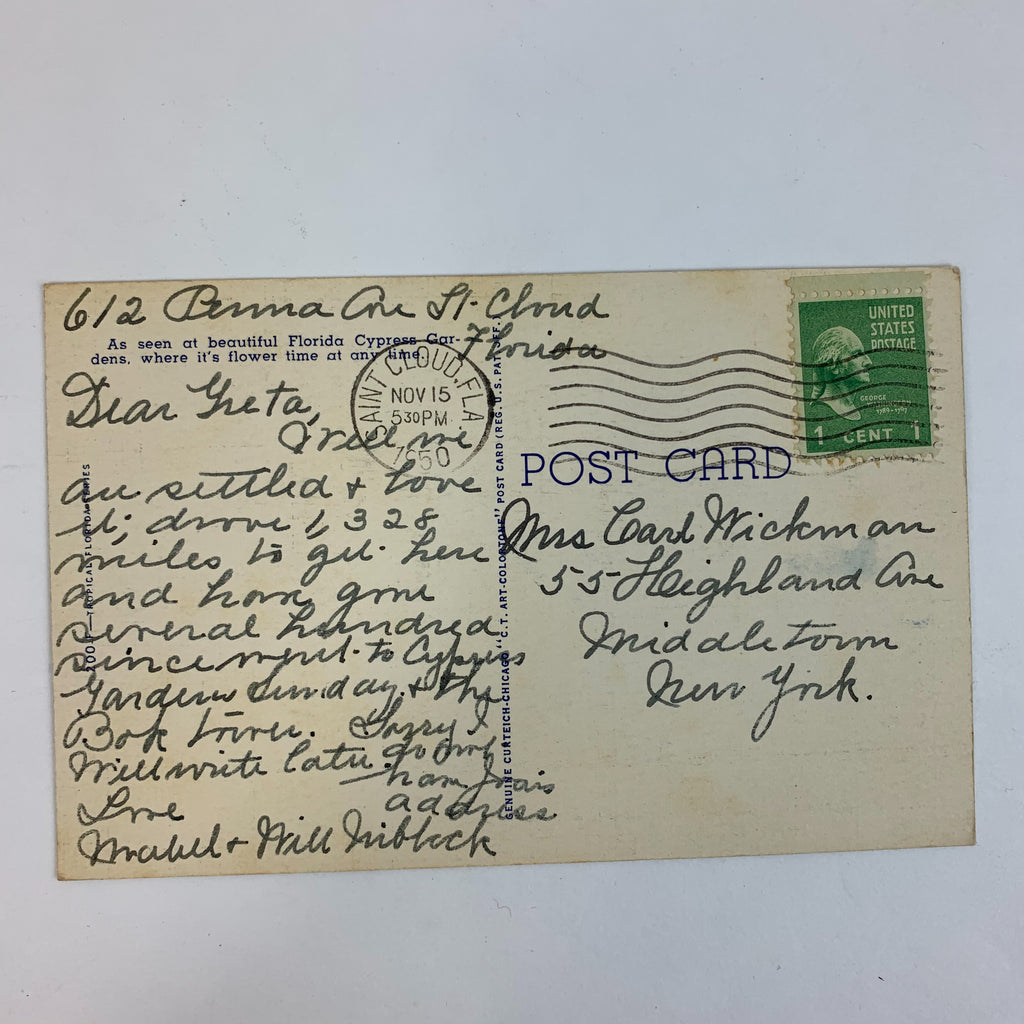 612 Penna Ave St. Cloud
Florida
As seen at beautiful Florida Cypress Gar-
dens, where it's flower time at any time.
Dear Greta,
Well we
are settled & love
it; drove 1,328
miles to get here
and have gone
several hundred
since went to Cypress
Gardens Sunday & the
Bok tower. Sorry I
do not
Will write later.
have
address
Love
Mabel & Will Niblock
SAINT CLOUD, FLA
NOV 15
530 PM
1950
200 F—TROPICAL FLORIDA SERIES
GENUINE CURTEICH-CHICAGO "C.T. ART-COLORTONE" POST CARD (REG. U.S. PAT. OFF.)
UNITED
STATES
POSTAGE
GEORGE
1789-1797
1 CENT 1
POST CARD
Mrs Carl Wickman
55 Highland Ave
Middletown
New York.